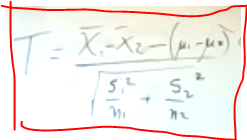 T = (X̄₁ - X̄₂ - (μ₁ - μ₂)) / √(S₁²/n₁ + S₂²/n₂)